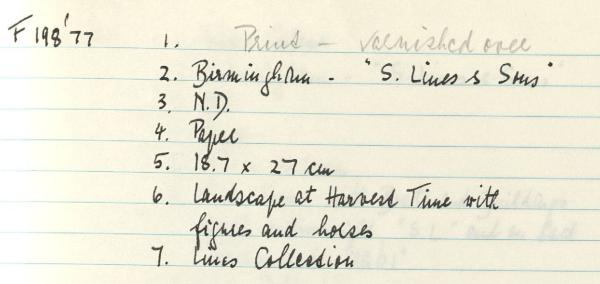 F198'77
1. Print - varnished over
2. Birmingham - "S. Lines & Sons"
3. N.D.
4. Paper
5. 18.7 x 27 cm
6. Landscape at Harvest Time with
figures and horses
7. Lines Collection